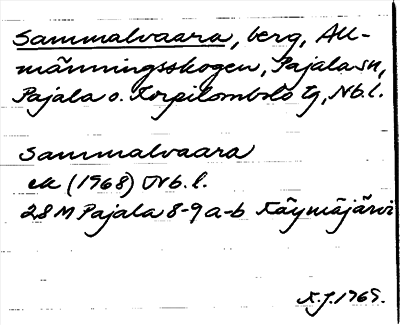 Sammalvaara, berg, All-
männingsskogen, Pajala sn,
Pajala o. Korpilombolo tg, Nb. l.
Sammalvaara
ek (1968) Nb. l.
28 M Pajala 8-9 a-b Käymäjärvi
K.J. 1969.